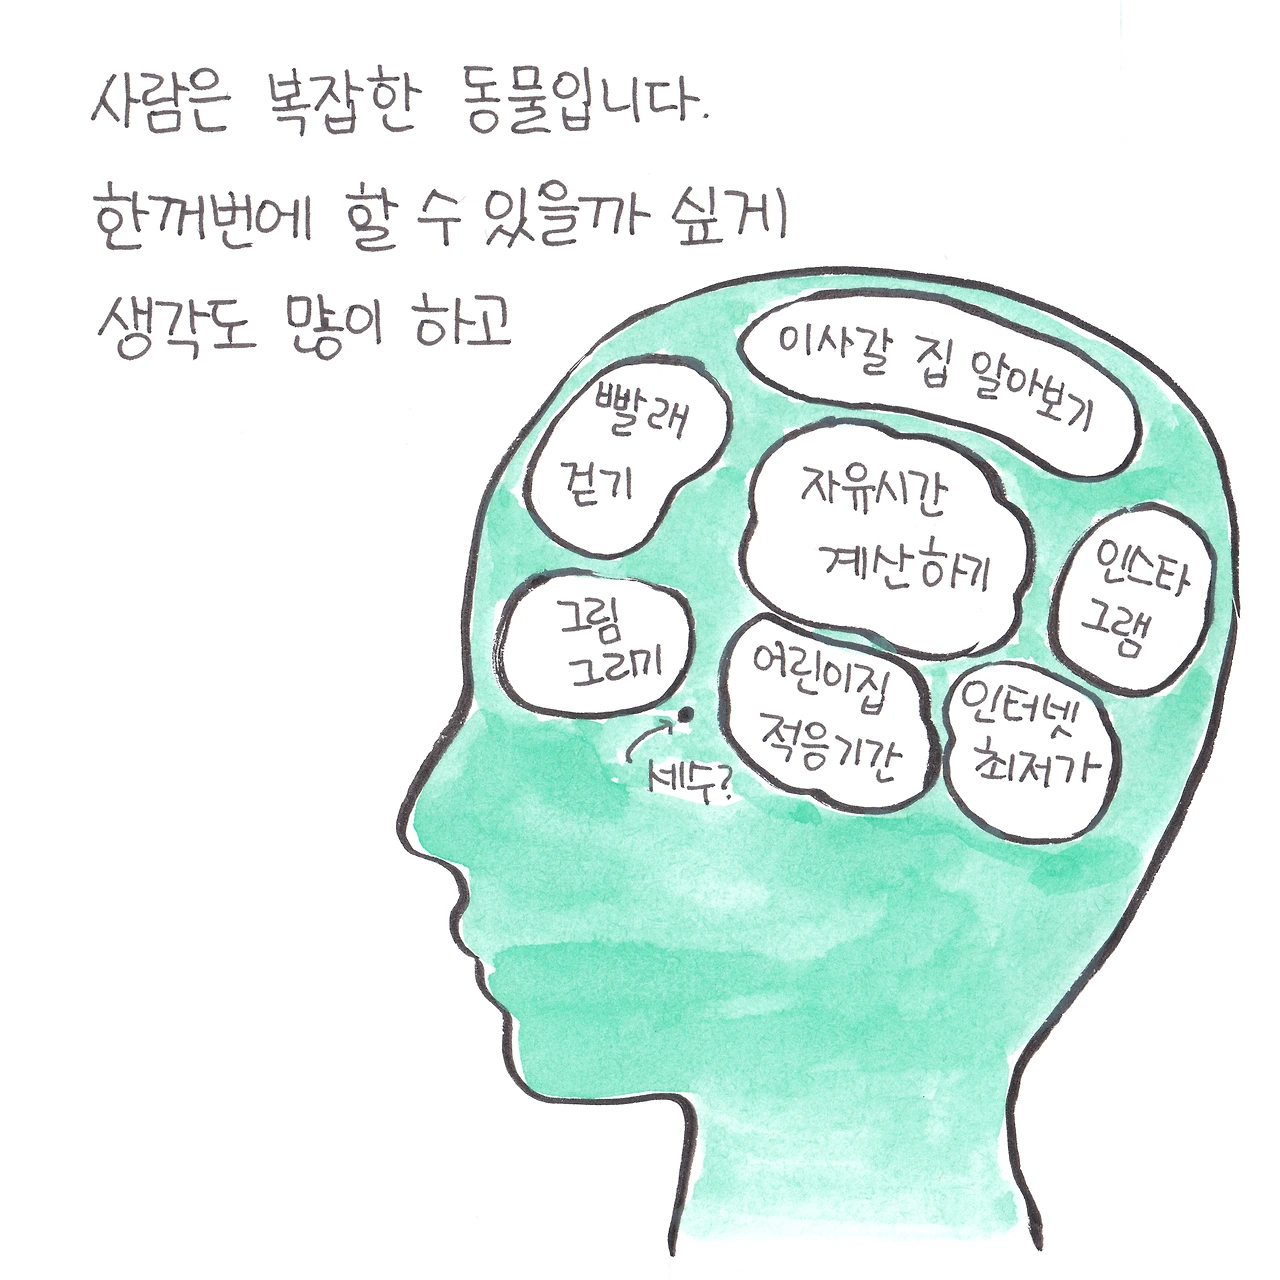 사람은 복잡한 동물입니다.
한꺼번에 할 수 있을까 싶게
생각도 많이 하고
이사갈 집 알아보기
빨래
걷기
자유시간
계산하기
인스타
그램
그림
그리기
어린이집
적응기간
인터넷
최저가
세수?